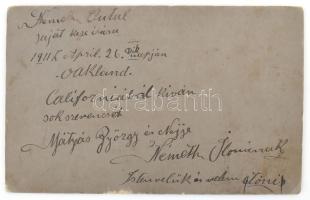 Németh Antal
saját kézirása
1911 April. 26. napján
Oakland.
Californiából kiván
sok szerencsét
Mátyás György és Neje
Németh Ilonának
Isten velük és velem